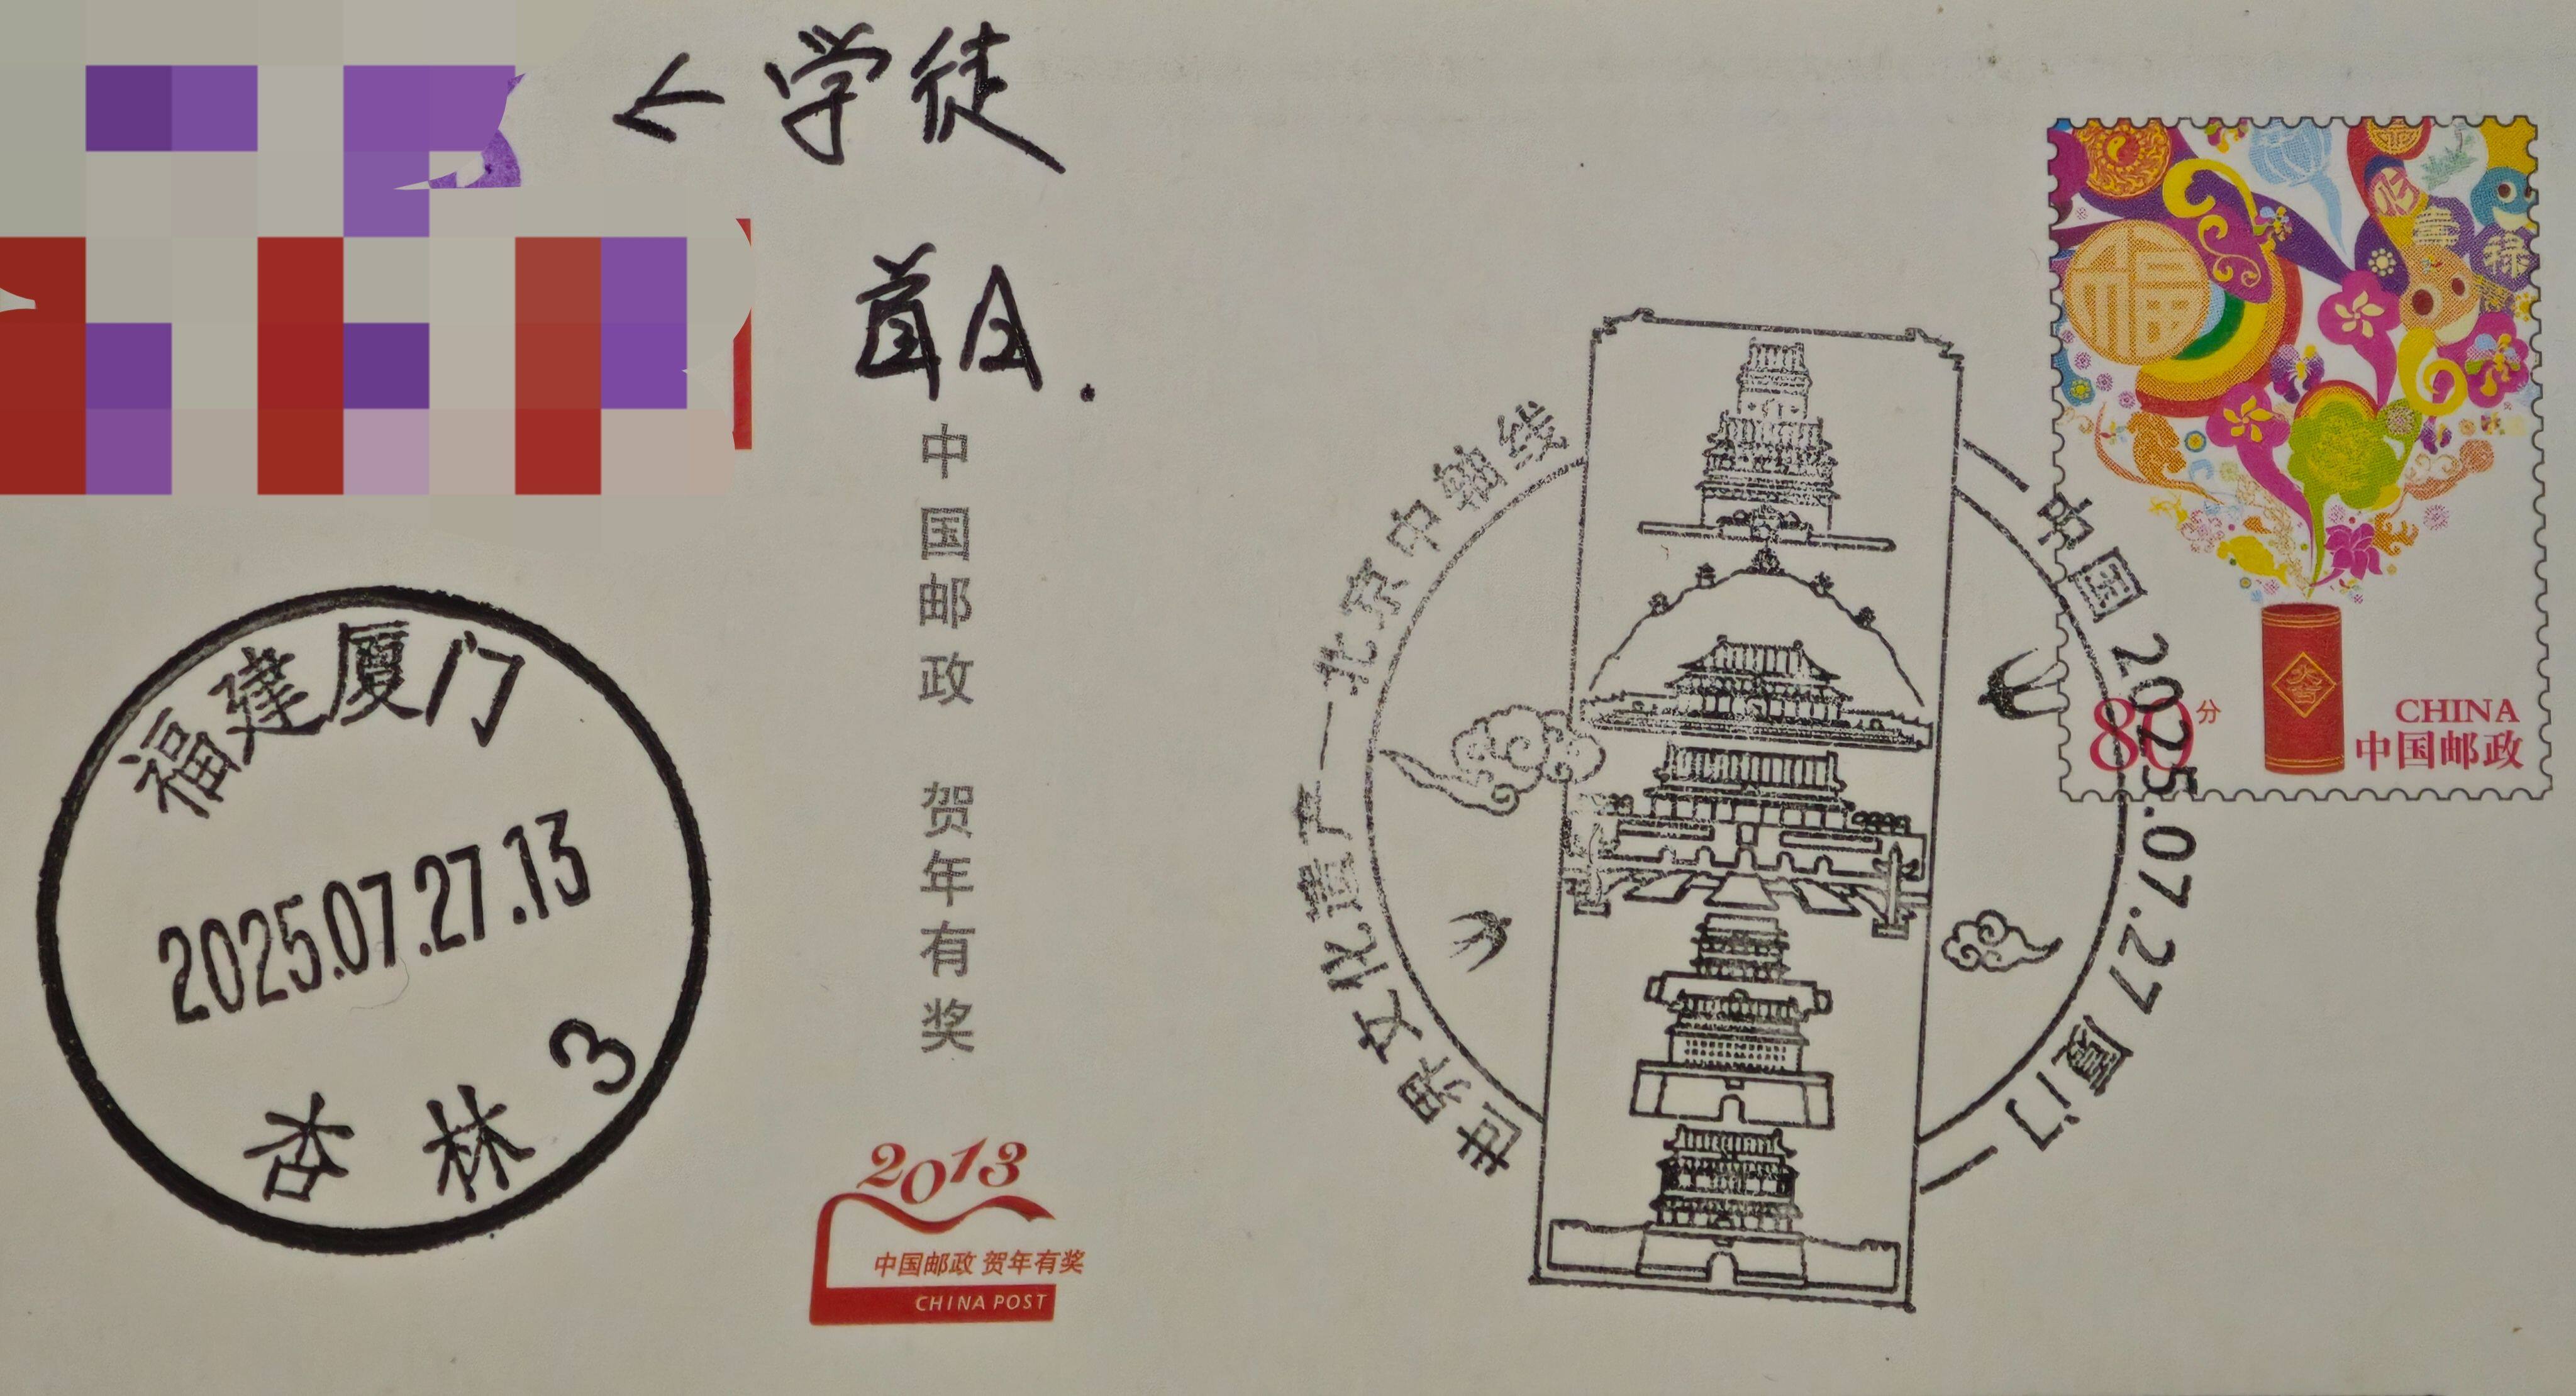 ←学徒
首日.
中国邮政 贺年有奖
福建厦门
2025.07.27.13
杏林3
2013
中国邮政 贺年有奖
CHINA POST
世界文化遗产—北京中轴线
中国 2025.07.27 厦门
福
禄
80分
CHINA
中国邮政